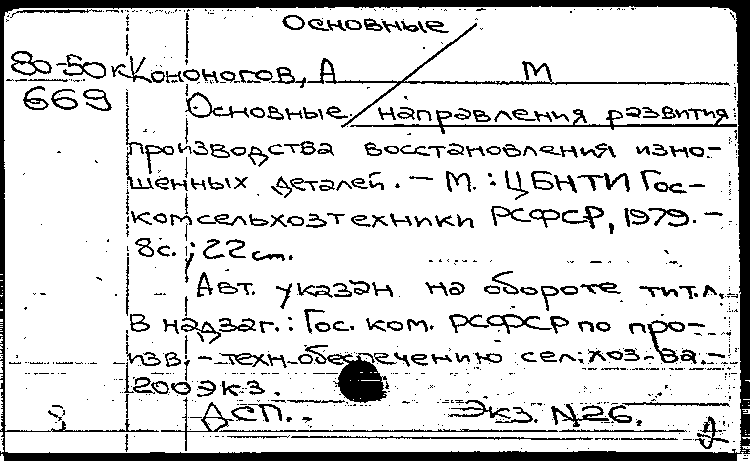 Основные
80-50к Кононогов, А М
669 Основные направления развития
производства восстановления изно-
шенных деталей. – М.: ЦБНТИ Гос-
комсельхозтехники РСФСР, 1979. –
8с.; 22см.
Авт. указан на обороте тит.л.
В надзаг.: Гос. ком. РСФСР по про-
изв.-техн. обеспечению сел. хоз-ва. –
200 экз.
ДСП. – Экз. N26.